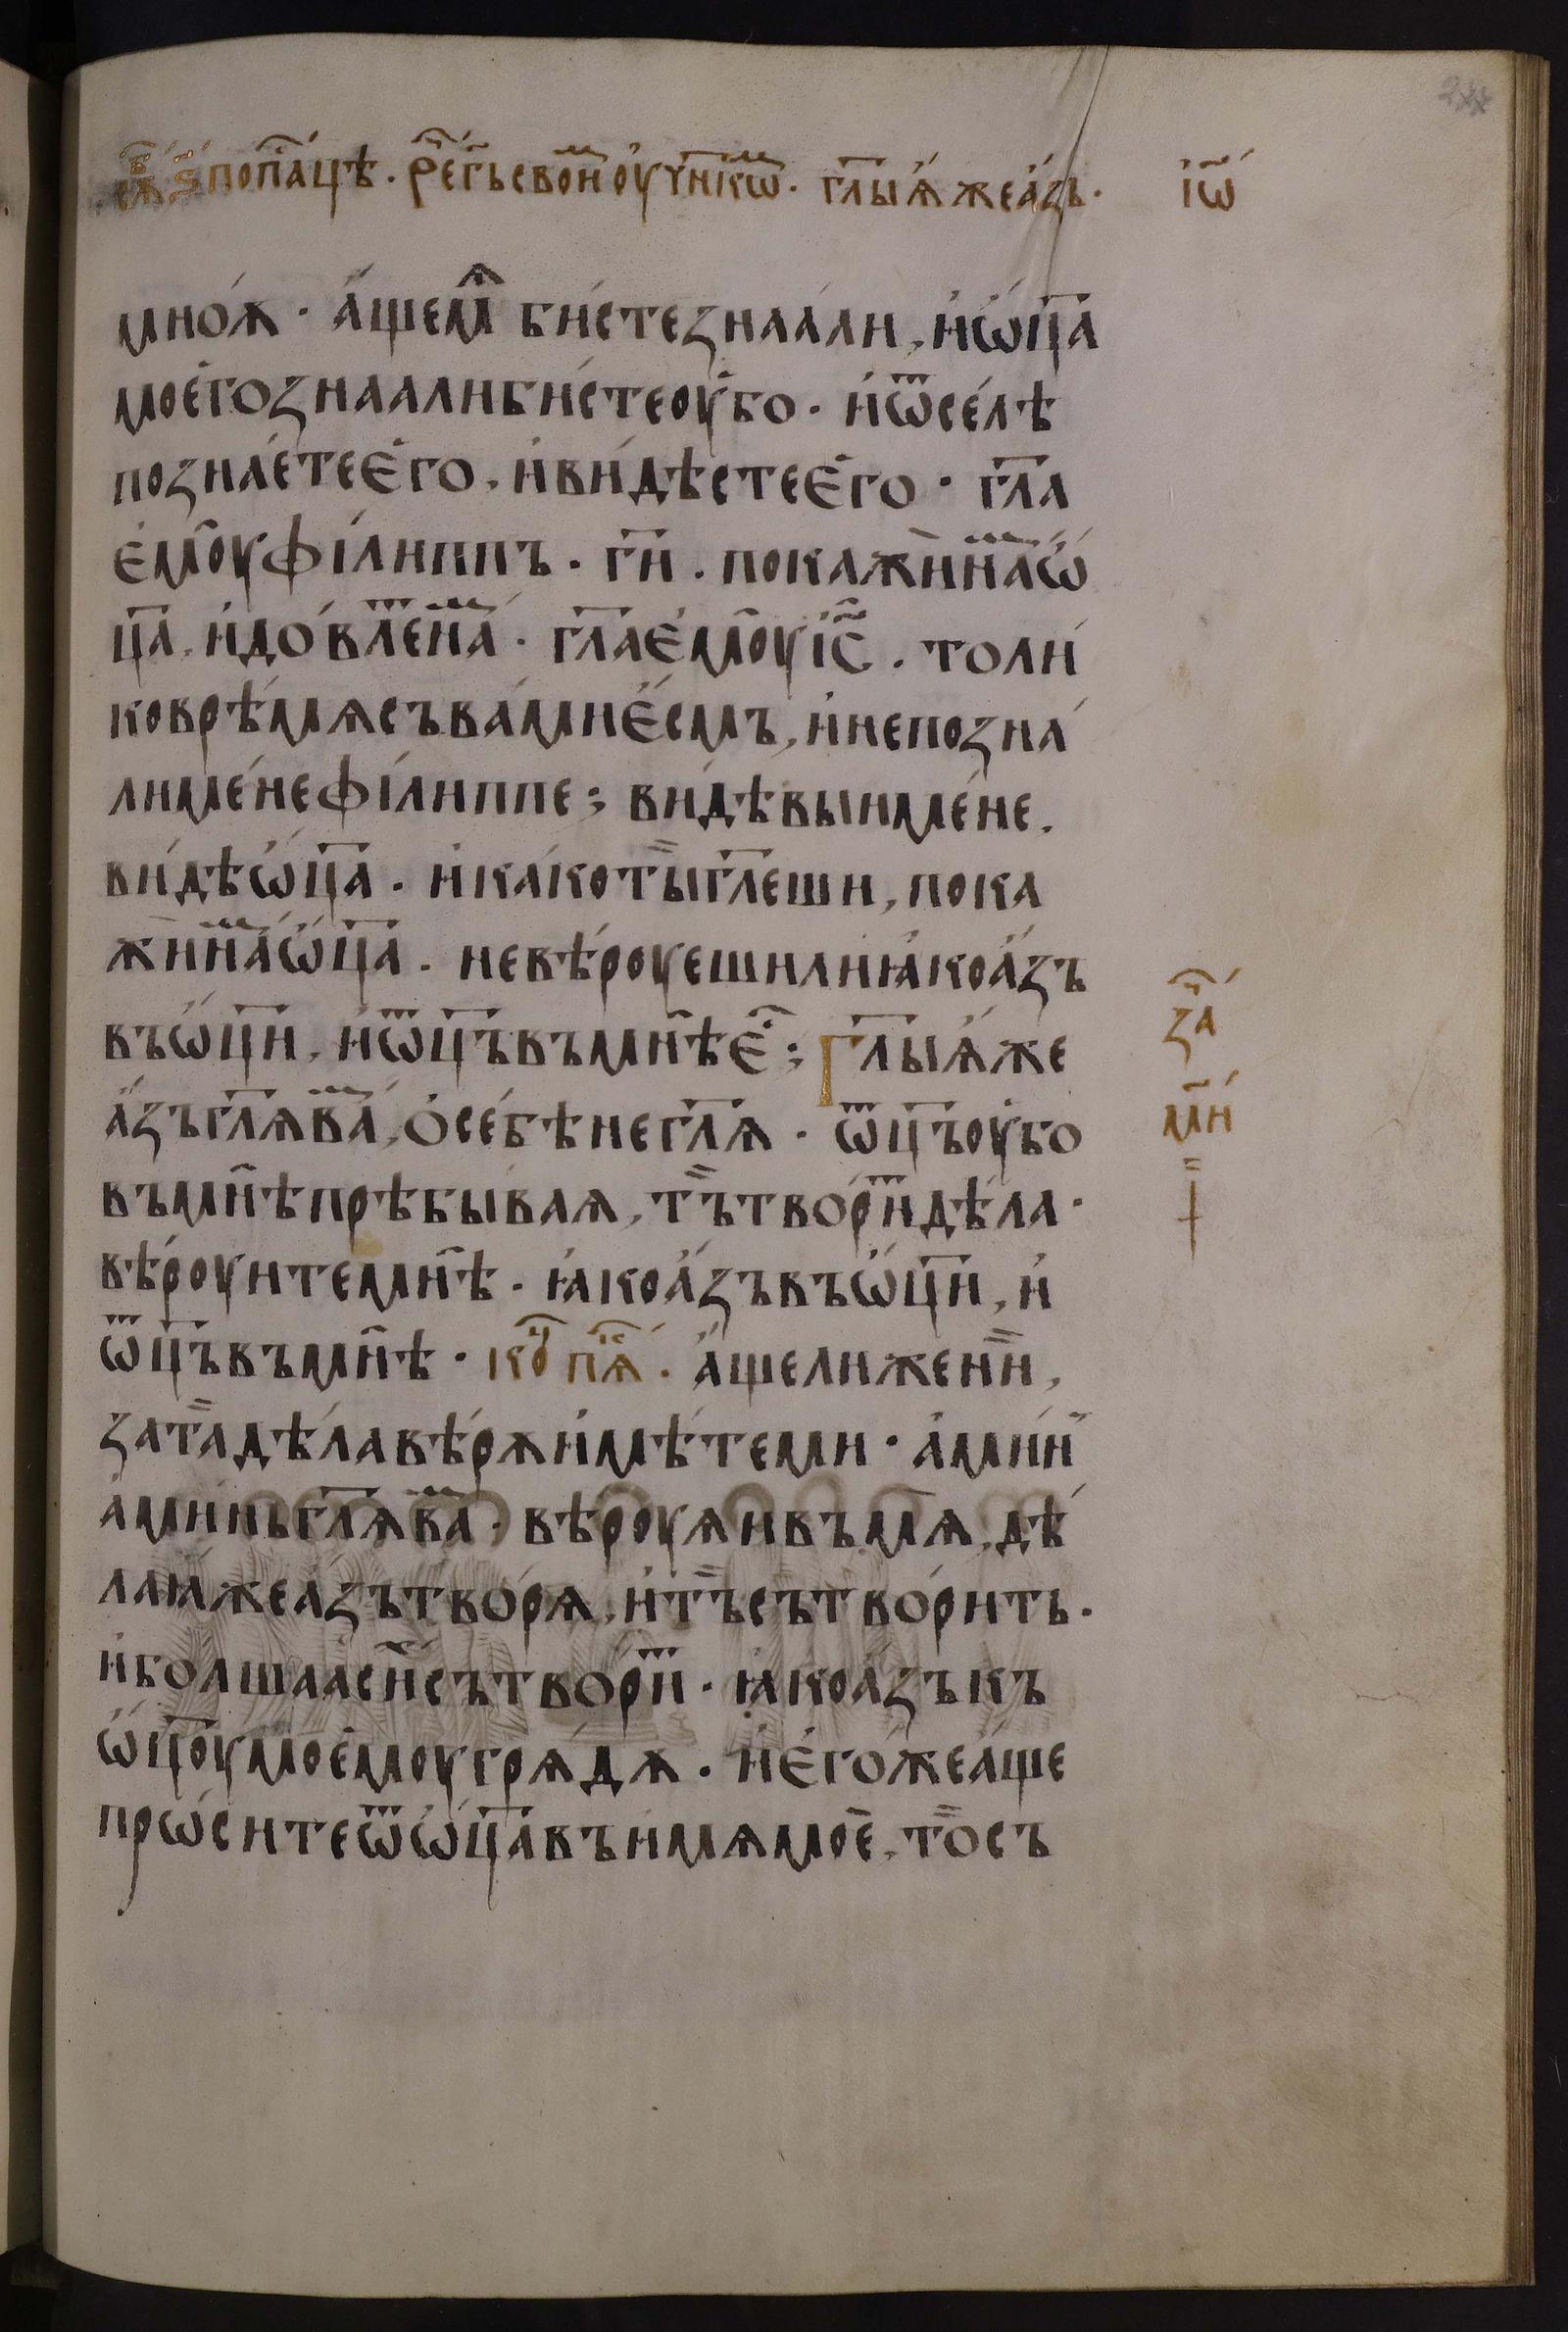 сѫ҃ ѕ҃ попⷶацѣ · рⷱ҇е г҃ь свои́мⷨ оу҆ч҃нікѡⷨ · гл҃ы ꙗ҆́же а҆́зъ · і҆ѡ҃
мно́ѫ · а҆́ще мѧⷶ би́сте знаа́ли, и҆ ѡ҆ц҃а
моего̀ знаали би́сте оу҆́бо · и҆ ѿсе́лѣ
позна́ете є҆го̀, и҆ ви́дѣсте є҆го̀ · гл҃а
є҆мо́у фі́липпъ · г҃и · покажѝ наⷨ ѡ҆
ц҃а, и҆ довлⷮе́ наⷨ · гл҃а є҆мо́у і҆с҃ · толи́
ко врѣ́мѧ съ ва́ми є҆́смъ, и҆ не позна́
ли ме́не фі́липпе ; ви́дѣвыи ме́не ·
ви́дѣ ѡ҆ц҃а · и҆ ка́ко ты̀ гл҃еши, пока
жѝ наⷨ ѡ҆ц҃а · не вѣ́роуеши ли ꙗ҆́ко а҆́зъ
въ ѡ҆ц҃и, и҆ ѿц҃ъ въ мнѣ̀ єⷭ҇ ; гл҃ы ꙗ҆́же
заⷱ҇
а҆́зъ гл҃ѧ ваⷨ, ѻ҆ се́бѣ не гл҃ѧ · ѿц҃ъ оу҆́бо
мн҃
въ мнѣ̀ прѣбыва́ѧ, тъ̏ творⷮи́ дѣла ·
вѣ́роуите мнѣ̀ · ꙗ҆́ко а҆́зъ въ ѡ҆ц҃и, и҆
ѿц҃ъ въ мнѣ̀ · коⷰ҇ пѧⷦ҇ · а҆́ще ли же ни̏,
за та̏ дѣ́ла вѣ́рѫ и҆мѣ́те ми · а҆ми́н
а҆ми́нь гл҃ѧ ваⷨ · вѣ́роуѧи въ мѧ̀, дѣ́
ла ꙗ҆́же а҆́зъ тво́рѧ, и҆ тъ̏ сътво́рить ·
и҆ болшаа сиⷯ сътворⷮи́ · ꙗ҆́ко а҆́зъ къ
ѡ҆ц҃оу моемоу грѧ́дѫ · и҆ є҆го́же а҆́ще
прѡ́сите ѿ ѡ҆ц҃а въ и҆мѧ моѐ, то̏ съ